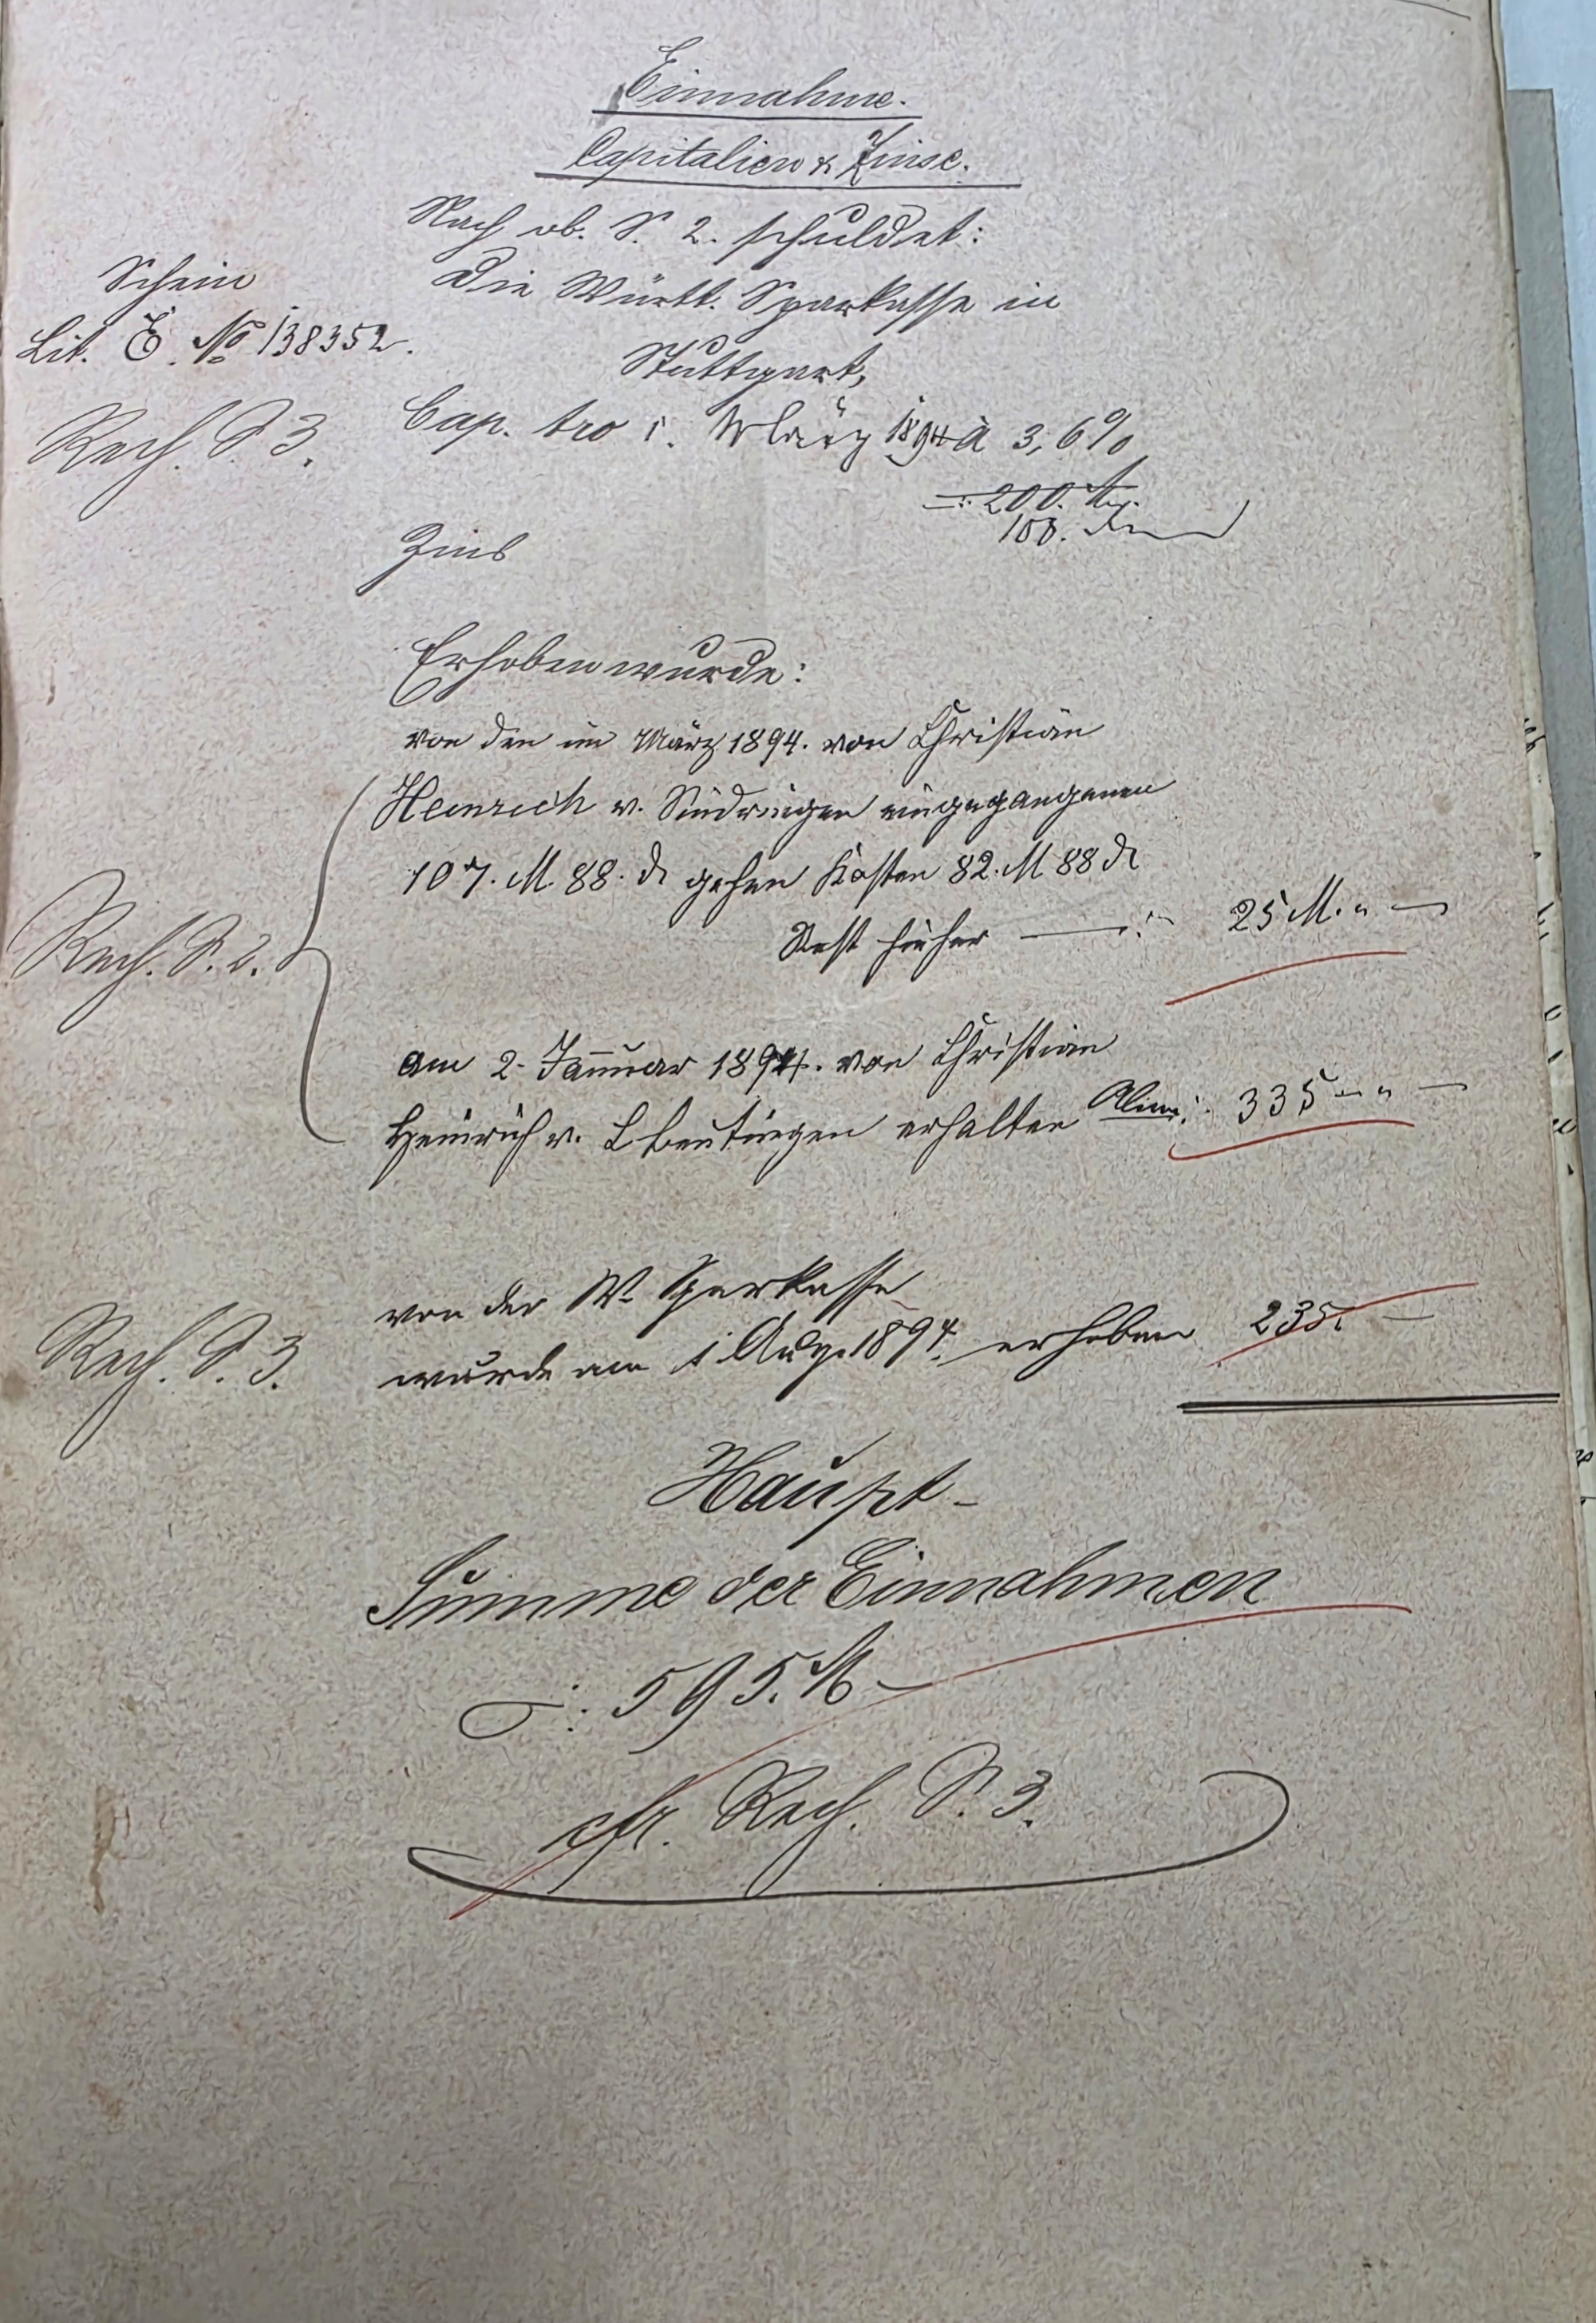 Einnahme.
Capitalien & Zinse.
Nach ob. S. 2. schuldet:
Schein
Die Württ. Sparkasse in
Lit. E. No 138352.
Stuttgart,
Rech. S 3.
Cap. pro 1. März 1894 à 3,6%
200.
100.
Zins
Erhoben wurde:
von den im März 1894. von Christian
Heinrich v. Sindringen eingegangenen
107. M. 88. d gehen Kosten 82. M 88 d
Rech. S. 2.
Rest hieher —.:. 25 M. „ —
am 2. Januar 1894. von Christian
Heinrich v. erhalten Alim: 335 „ „ —
von der W. Sparkasse
Rech. S. 3.
wurde am 1 Aug. 1894. erhoben 235. —
Haupt-
Summe der Einnahmen
—.: 595. M —
cfr. Rech. S. 3.